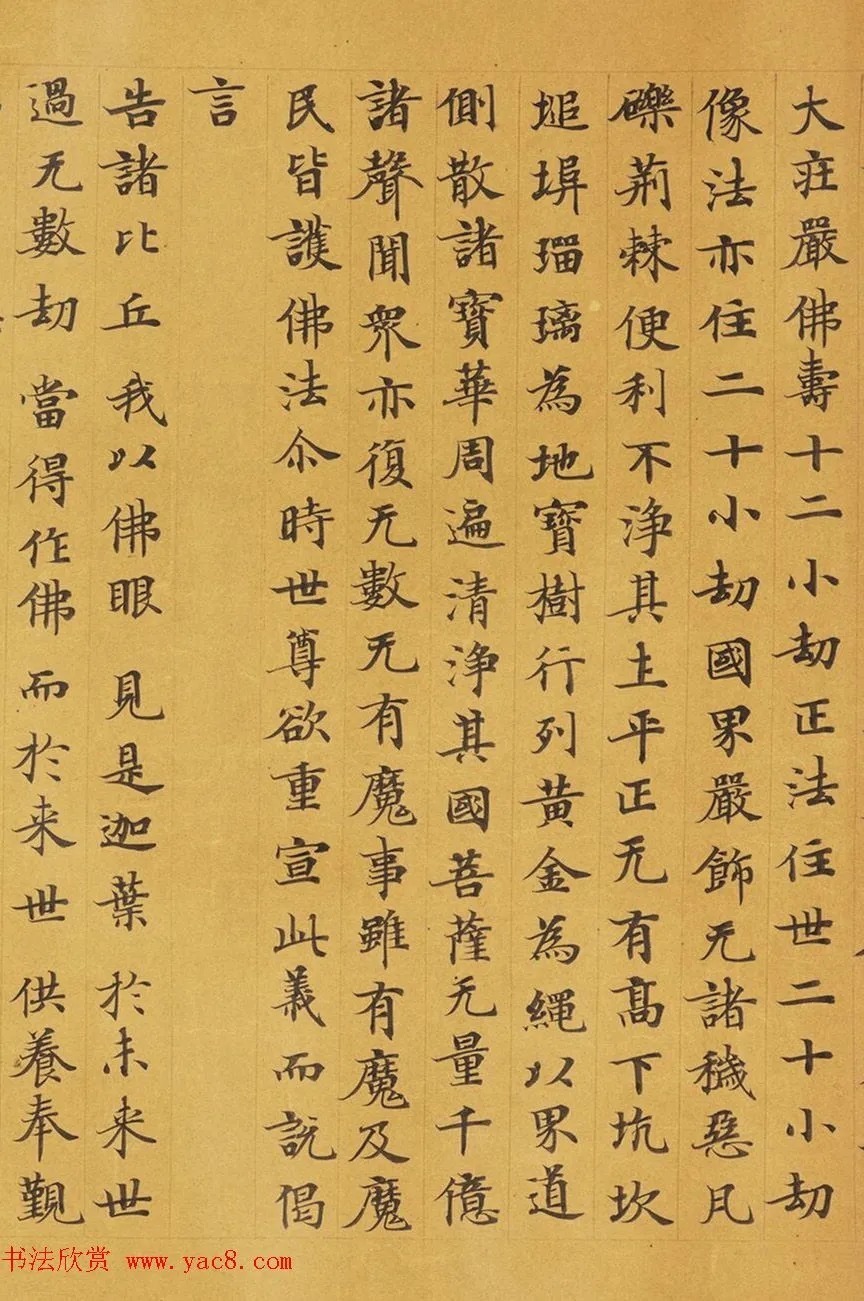 大庄嚴佛壽十二小劫正法住世二十小劫
像法亦住二十小劫國界嚴飾无諸穢惡凡
礫荊棘便利不淨其土平正无有髙下坑坎
塠埠瑠璃為地寶樹行列黃金為繩以界道
側散諸寶華周遍清淨其國菩薩无量千億
諸聲聞眾亦復无數无有魔事雖有魔及魔
民皆護佛法尒時世尊欲重宣此義而說偈
言
告諸比丘 我以佛眼 見是迦葉 於未来世
過无數劫 當得作佛 而於来世 供養奉覲
书法欣赏 www.yac8.com